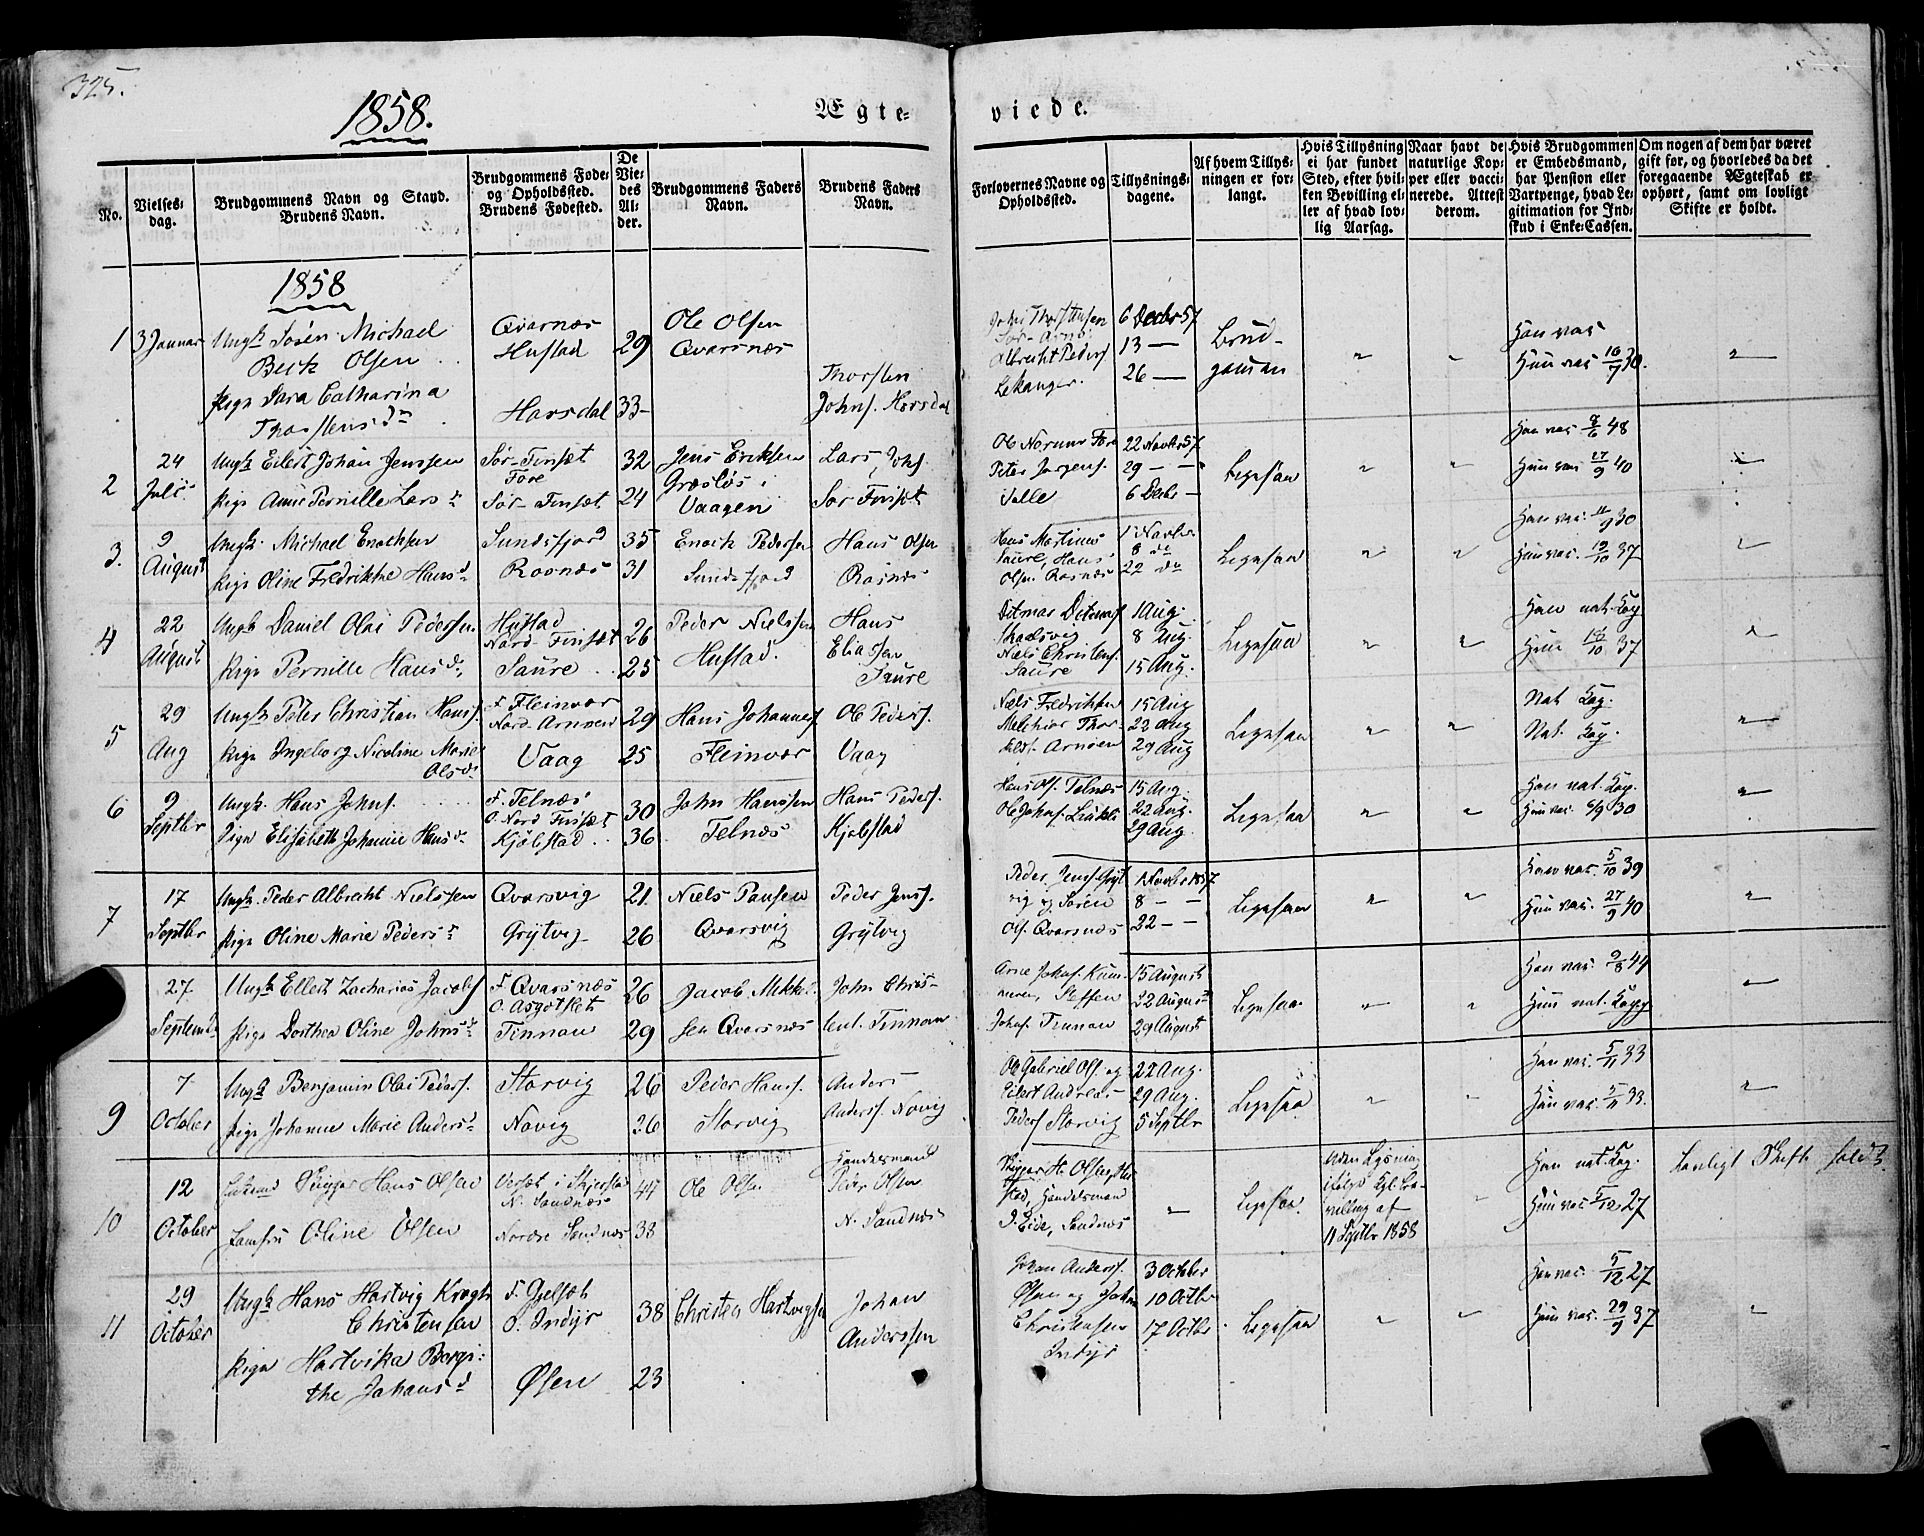 325.
1858.
Ægte-
viede.
No.
Vielses-
dag.
Brudgommens Navn og Stand.
Brudens Navn.
Brudgommens Føde-
og Opholdssted.
Brudens Fødested.
De
Vie-
des
Al-
der.
Brudgommens Faders
Navn.
Brudens Faders
Navn.
Forlovernes Navne og
Opholdssted.
Tillysnings-
dagene.
Af hvem Tillys-
ningen er for-
langt.
Hvis Tillysning
ei har fundet
Sted, efter hvil-
ken Bevilling el-
ler af hvad lov-
lig Aarsag.
Naar havt de
naturlige Kop-
per eller vacci-
nerede. Attest
derom.
Hvis Brudgommen
er Embedsmand,
har Pension eller
Vartpenge, hvad Le-
gitimation for Ind-
skud i Enke-Cassen.
Om nogen af dem har været
gift før, og hvorledes da det
foregaaende Ægteskab er
ophørt, samt om lovligt
Skifte er holdt.
1858
1 3 Januar Ungk Sosen Michael
Beck Olsen
Qvarnæs
Hustad 29
Ole Olsen
Qvarsnæs
Pige Sara Catharina
Thorstensdr
Horsdal 33
Thorsten
Johns. Horsdal
6 Decbr 57
Albrecht Peders
13 —
26 —
Brud-
gommen
" "
Han vac.
Hun vac. 16/7 30.
"
2 24
Juli
Ungk Eilert Johan Jenssen
Pige Anne Pernille Larsdr
Sør-Finsæt
Fore
Sør-Finsæt
32
24
Jens Eriksen
Græsløs i
Vaagen
Lars Johs.
Sør Finsæt
Ole Norum Fore
Peter Jørgens.
Valle
22 Novbr 57
29 — —
6 Decbr —
Ligesaa
" "
Han vac. 48
Hun vac. 27/9 40
"
3. 9
August
Ungk. Michael Enochsen
Pige Oline Fredrikke Hansd
Sundsfjord
Rosnæs
35
31
Enock Pedersen
Sundsfjord
Hans Olsen
Rosnæs
Hans Martinus
Saure, Hans
Olsen Rosnæs
1 Novbr
8 do
22 do
Ligesaa
" "
Han vac. 11/9 30
Hun vac. 19/10 37
"
4 22
August
Ungk Daniel Olai Pedersen
Pige Pernille Hansdr
Hustad
Nord-Finsæt
Saure
26
25
Peder Nielssen
Hustad.
Hans
Eliassen
Saure
Ditmar Ditmars
Skaelsvig
Niels Christens.
Saure
1 Aug.
8 Aug.
15 Aug.
Ligesaa
" "
Han nat. Kop
Hun 37
"
5 29
Aug
Ungk Peter Christian Hans.
Pige Ingeborg Nicoline Marie
Olsdr
F. Fleinvær
Nord Arnøen
Vaag
29
25
Hans Johannes
Fleinvær
Ole Peders.
Vaag
Niels Fredriksen
Melchior Thor
Arnøen
15 Aug
22 Aug
29 Aug
Ligesaa
" "
Nat Kop.
Nat. Kop.
"
6 9
Septbr
Ungk. Hans Johns.
Pige Elisabeth Johanne Hansdr
F. Telnæs
O. Nord Finsæt
Kjølstad
30
36
John Hanssen
Telnæs
Hans Peders.
Kjølstad
Hans Ols. Telnæs
Ole Johns.
15 Aug.
22 Aug.
29 Aug.
Ligesaa
" "
Han nat. Kop.
Hun vac. 6/9 30
"
7 17
Septbr
Ungk. Peder Albrecht Nielssen
Pige Oline Marie Pedersdr
Qvarsvig
Grytvig
21
26
Niels Paulsen
Qvarsvig
Peder Jens.
Grytvig
Peder Jens Gryt
vig og Søren
Ols. Qvarsnæs
1 Novbr 1857
8 — —
22 — —
Ligesaa
" "
Han vac. 5/10 39
Hun vac. 27/9 40
"
27
Septembr
Ungk Ellert Zacharias Jacobs
Pige Dorthea Oline Johnsdr
F Qvarsnæs
O. Asgotset
Finnøen
26
29
Jacob Mikkel-
sen Qvarsnæs
John Chris-
tens. Finnøen
Arne Johns. Kun-
Steffen
Johns. Finnøen
15 August
22 August
29 August
Ligesaa
" "
Han vac. 9/8 44
Hun nat. Kopp
"
9 7
October
Ungk Benjamin Olai Peders.
Pige Johanne Marie Andersdr
Storvig
Novig
26
26
Peder Hans.
Storvig
Anders
Anders. Novig
Ole Gabriel Ols. og
Eilert Andreas
Peders Storvig
22 Aug.
29 Aug.
5 Septbr
Ligesaa
" "
Han vac. 5/11 33
Hun vac. 5/11 33.
"
10 12
October
Hans Olsen
Jomfru Oline Olsen
Versæt i Skjerstad
N. Sandnæs
Nordre Sandnæs
44
38
Ole Olsen
Handelsmand
Peder Olsen
N. Sandnæs
Handelsmand
Eide, Sandnæs
"
Ligesaa.
uden Lysning
ifølge Kgl. Be-
villing af
11 Septbr 1858
"
Han nat. Kop.
Hun vac. 5/12 27
Lovligt Skifte holdt
11 29
October
Ungk Hans Hartvig Krogh
Christensen
Pige Hartvika Bergi-
the Johansd
F. Gjelsæt
O. Indyr
Øsen
38
23
Christen Hartvigsen
Johan
Anderssen
Johan Anders.
Øsen og John
Christensen
Indyr
3 Octobr
10 Octbr
17 Octbr
Ligesaa
" "
Han vac. 5/12 27
Hun vac. 29/9 37
"